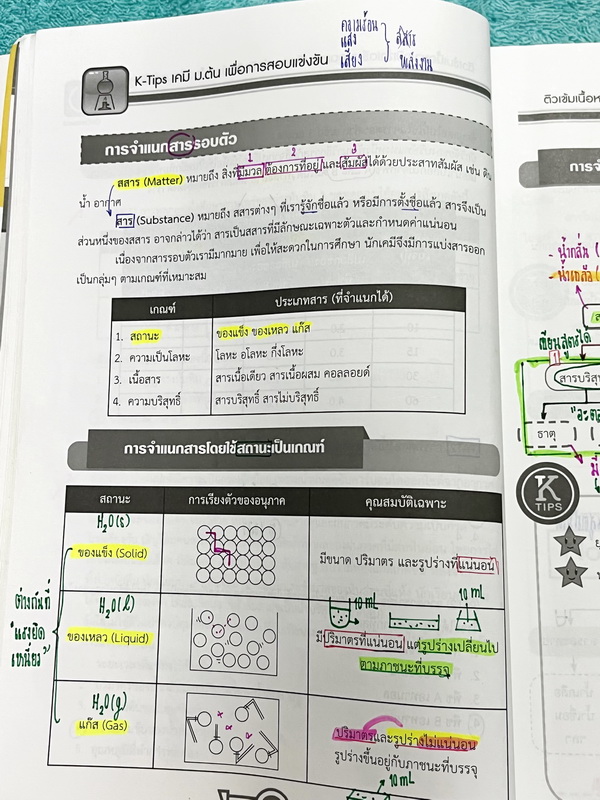 ความร้อน
แสง
เสียง
พลังงาน
K-Tips เคมี ม.ต้น เพื่อการสอบแข่งขัน
การจำแนกสารรอบตัว
1 2 3
สสาร (Matter) หมายถึง สิ่งที่มีมวล ต้องการที่อยู่ และสัมผัสได้ด้วยประสาทสัมผัส เช่น ดิน
น้ำ อากาศ
สาร (Substance) หมายถึง สสารต่างๆ ที่เรารู้จักชื่อแล้ว หรือมีการตั้งชื่อแล้ว สารจึงเป็น
ส่วนหนึ่งของสสาร อาจกล่าวได้ว่า สารเป็นสสารที่มีลักษณะเฉพาะตัวและกำหนดค่าแน่นอน
เนื่องจากสารรอบตัวเรามีมากมาย เพื่อให้สะดวกในการศึกษา นักเคมีจึงมีการแบ่งสารออก
เป็นกลุ่มๆ ตามเกณฑ์ที่เหมาะสม
เกณฑ์ ประเภทสาร (ที่จำแนกได้)
1. สถานะ ของแข็ง ของเหลว แก๊ส
2. ความเป็นโลหะ โลหะ อโลหะ กึ่งโลหะ
3. เนื้อสาร สารเนื้อเดียว สารเนื้อผสม คอลลอยด์
4. ความบริสุทธิ์ สารบริสุทธิ์ สารไม่บริสุทธิ์
การจำแนกสารโดยใช้สถานะเป็นเกณฑ์
สถานะ การเรียงตัวของอนุภาค คุณสมบัติเฉพาะ
H₂O(s)
ของแข็ง (Solid) มีขนาด ปริมาตร และรูปร่างที่แน่นอน
ต่างกันที่
"แรงยึด
เหนี่ยว"
H₂O(l)
10 mL 10 mL
ของเหลว (Liquid) มีปริมาตรที่แน่นอน แต่รูปร่างเปลี่ยนไป
ตามภาชนะที่บรรจุ
H₂O(g)
แก๊ส (Gas) ปริมาตรและรูปร่างไม่แน่นอน
รูปร่างขึ้นอยู่กับภาชนะที่บรรจุ
10 mL
ติวเข้มเนื้อห
การจ
- น้ำกลั่น (
เขียนสูตรได้
1
สารบริสุท
ธาตุ
มี
K
TIPS